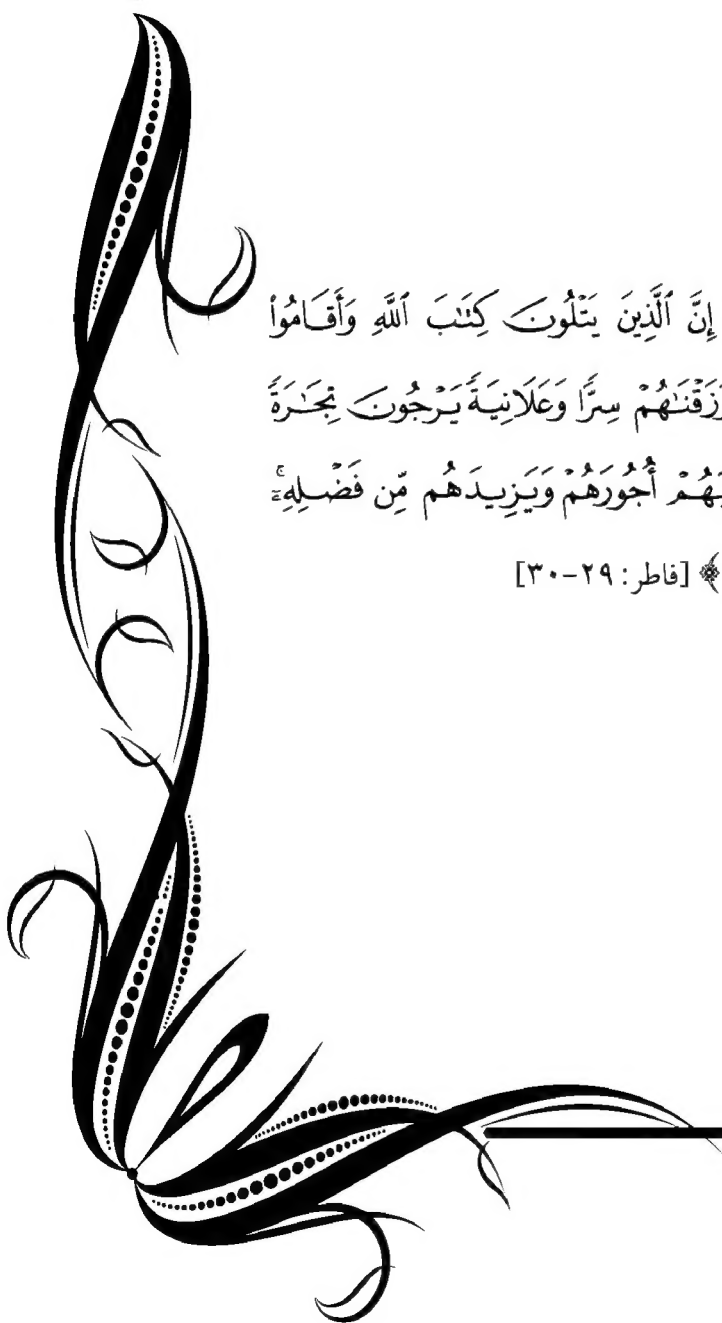 إِنَّ ٱلَّذِينَ يَتْلُونَ كِتَٰبَ ٱللَّهِ وَأَقَامُوا۟
رَزَقْنَٰهُمْ سِرًّا وَعَلَانِيَةً يَرْجُونَ تِجَٰرَةً
أُجُورَهُمْ وَيَزِيدَهُم مِّن فَضْلِهِۦٓ ۚ
﴾ [فاطر: ٢٩-٣٠]